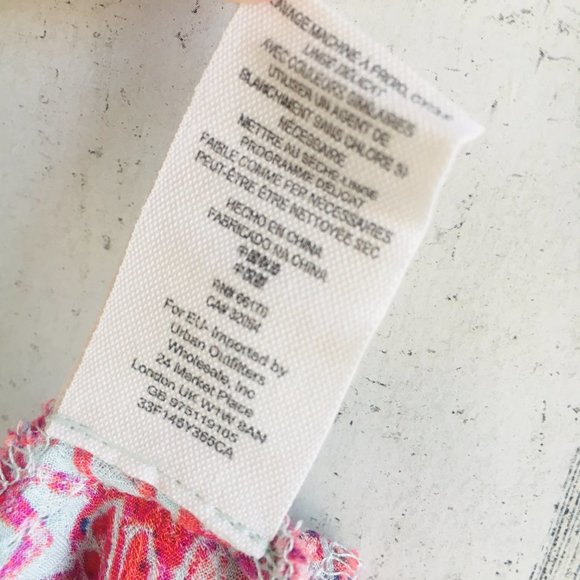 LAVAGE MACHINE À FROID, CYCLE
LINGE DÉLICAT
AVEC COULEURS SIMILAIRES
UTILISER UN AGENT DE
BLANCHIMENT SANS CHLORE SI
NÉCESSAIRE
METTRE AU SÈCHE-LINGE
PROGRAMME DÉLICAT
FAIBLE COMME FER NÉCESSAIRES
PEUT-ÊTRE ÊTRE NETTOYÉE SEC
HECHO EN CHINA
FABRICADO NA CHINA
中国制造
中国製
RN# 66170
CA# 32054
For EU- Imported by
Urban Outfitters
Wholesale, Inc
24 Market Place
London UK W1W 8AN
GB 975119105
33F145Y365CA